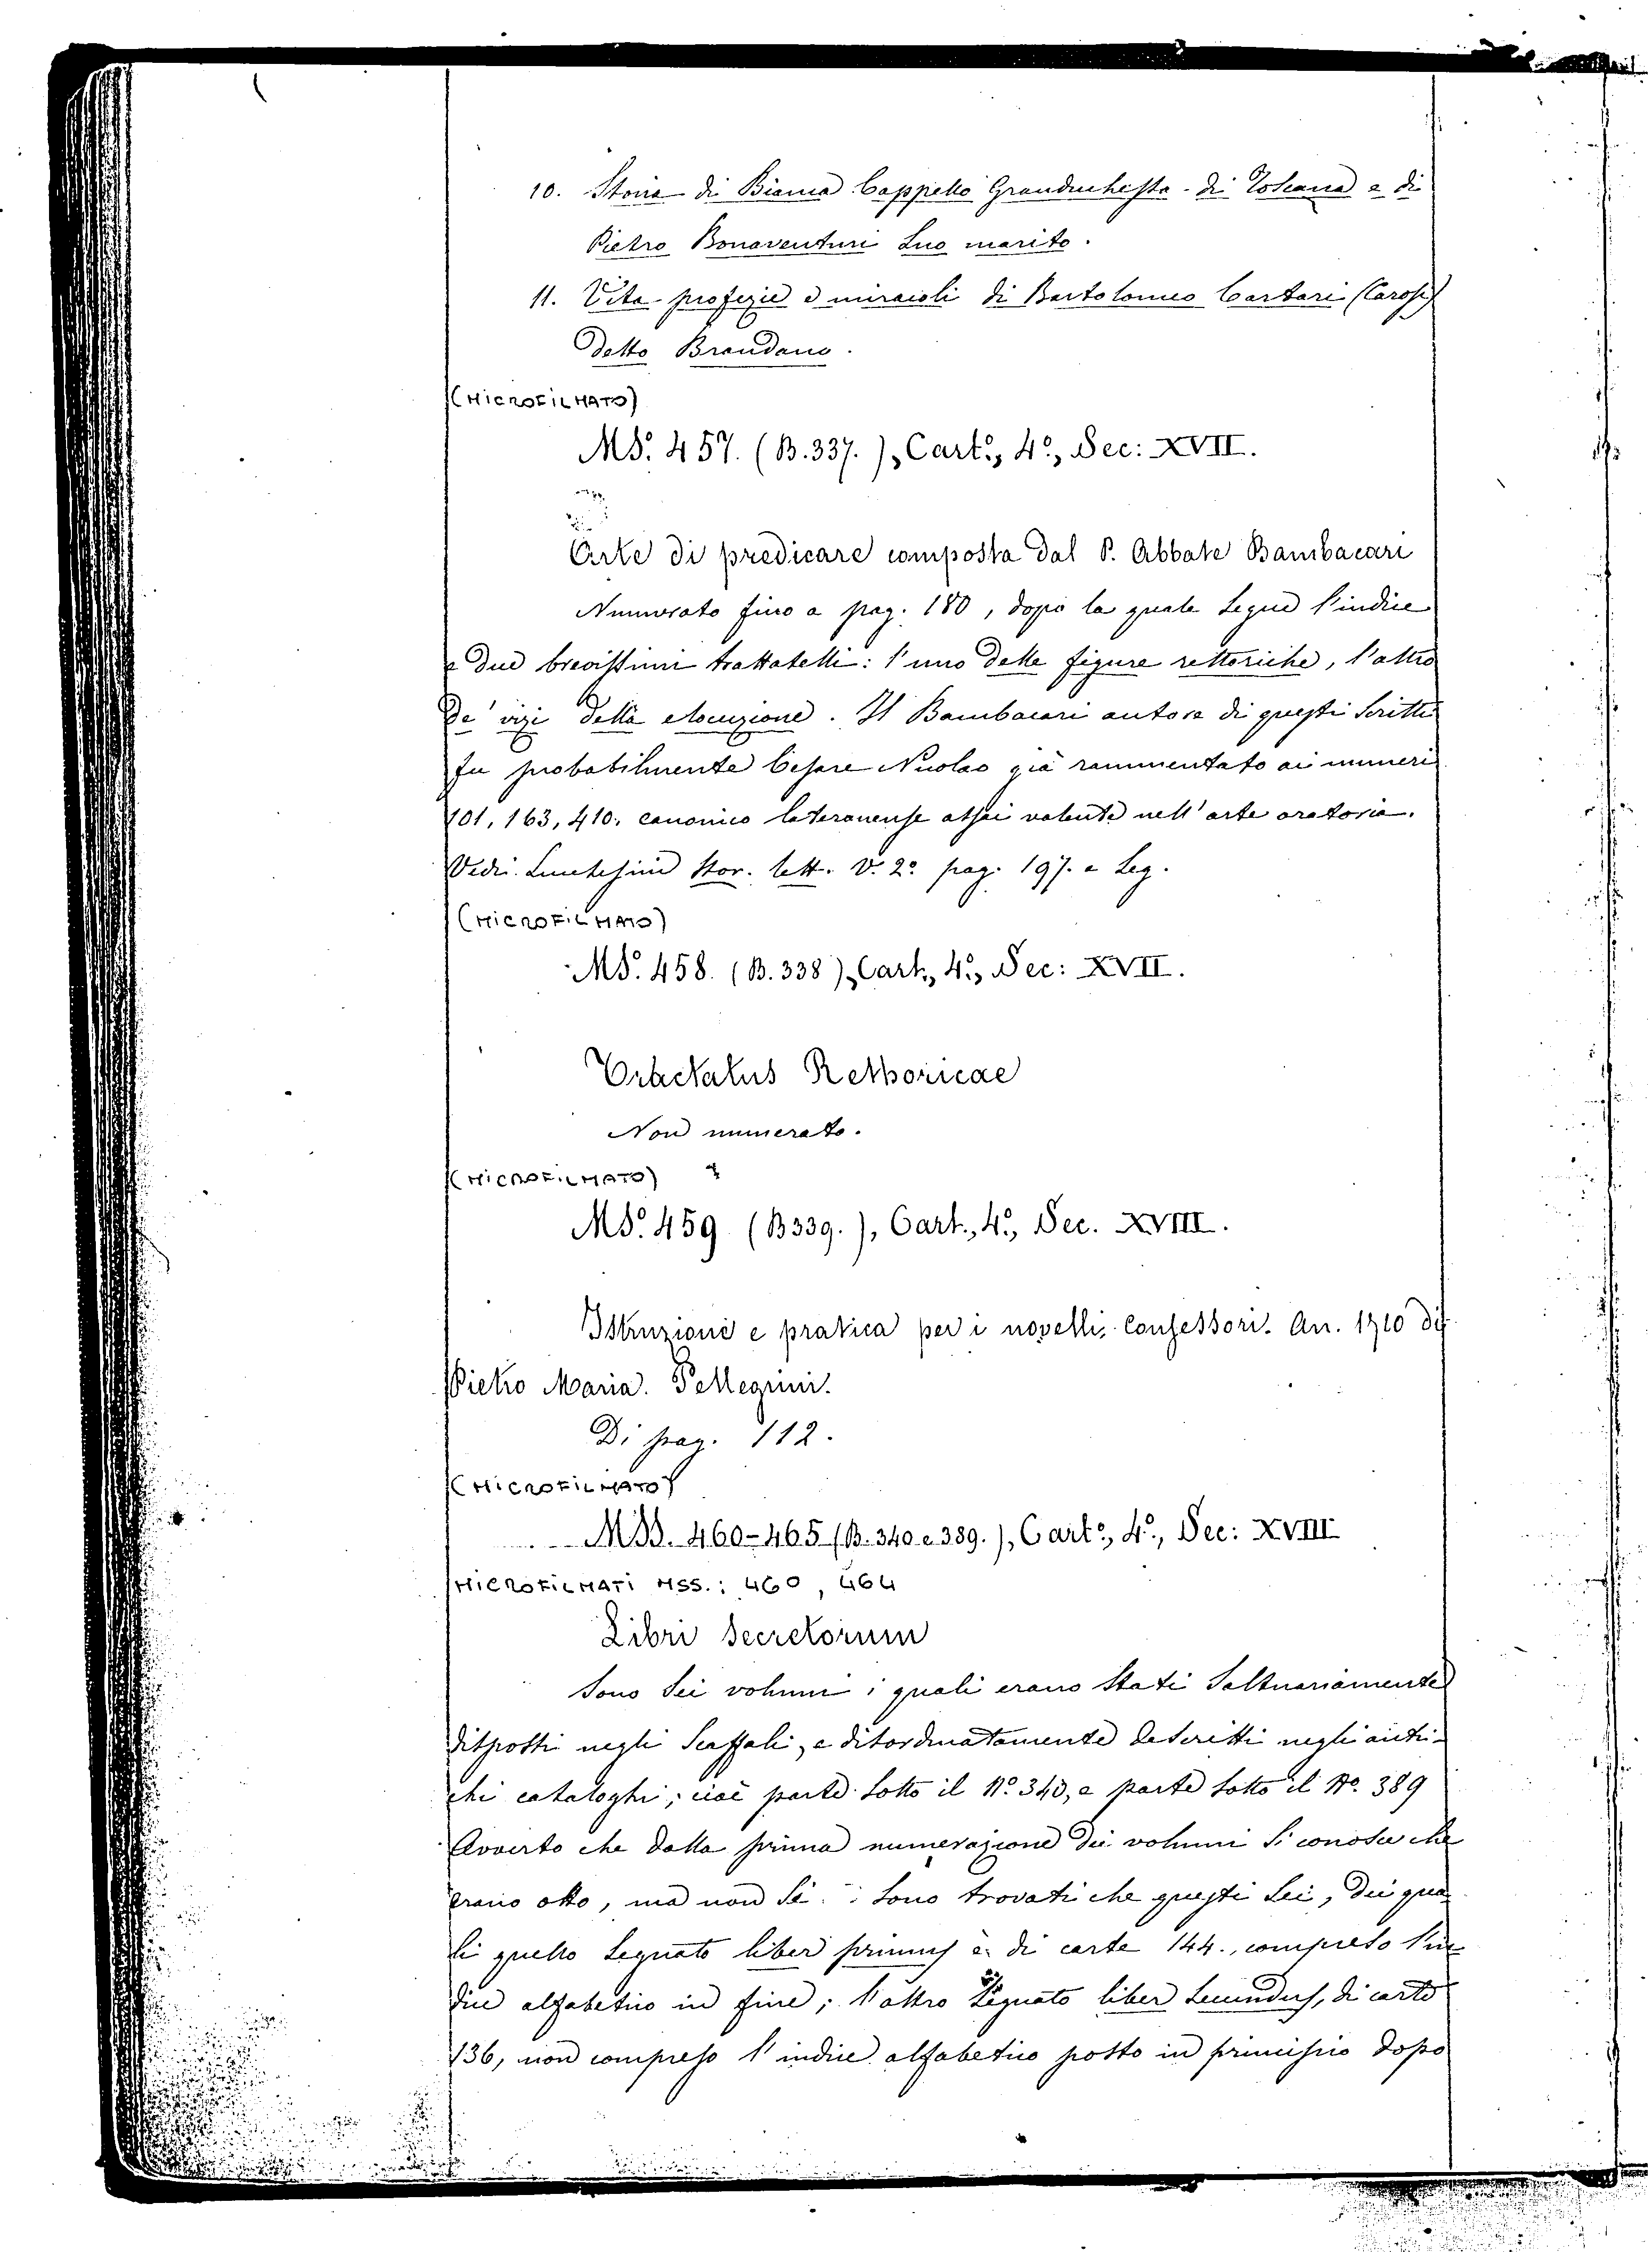 10. Storia di Bianca Cappello Granduchessa di Toscana e di
Pietro Bonaventuri suo marito.
11. Vita profezie e miracoli di Bartolomeo Cartari (Carosi)
detto Brandano.
(MICROFILMATO)
MS. 457. (B. 337.), Cart:, 4º, Sec: XVII.
Arte di predicare composta dal P. Abbate Bambacari
Numerato fino a pag. 180, dopo la quale segue l'indice
e due brevissimi trattatelli: l'uno delle figure rettoriche, l'altro
de' vizi della elocuzione. Il Bambacari autore di questi scritti
fu probabilmente Cesare Nicolao già rammentato ai numeri
101, 163, 410, canonico lateranense assai valente nell'arte oratoria.
Vedi Lucchesini Stor. lett. V. 2º pag. 197. e seg.
(MICROFILMATO)
MS. 458. (B. 338), Cart., 4º, Sec: XVII.
Tractatus Rethoricae
Non numerato.
(MICROFILMATO)
MS. 459 (B 339.), Cart., 4º, Sec. XVIII.
Istruzione e pratica per i novelli Confessori. An. 1710 di
Pietro Maria Pellegrini.
Di pag. 112.
(MICROFILMATO)
MSS. 460-465 (B. 340 e 389.), Cart:, 4º, Sec: XVIII
MICROFILMATI MSS.: 460, 464
Libri Secretorum
Sono sei volumi i quali erano stati saltuariamente
disposti negli scaffali, e disordinatamente descritti negli anti-
chi cataloghi; cioè parte sotto il Nº. 340, e parte sotto il Nº. 389
Avverto che dalla prima numerazione dei volumi si conosce che
erano otto, ma non si sono trovati che questi sei, dei qua
li quello segnato liber primus è di carte 144., compreso l'in
dice alfabetico in fine; l'altro segnato liber secundus, di carte
136, non compreso l'indice alfabetico posto in principio dopo